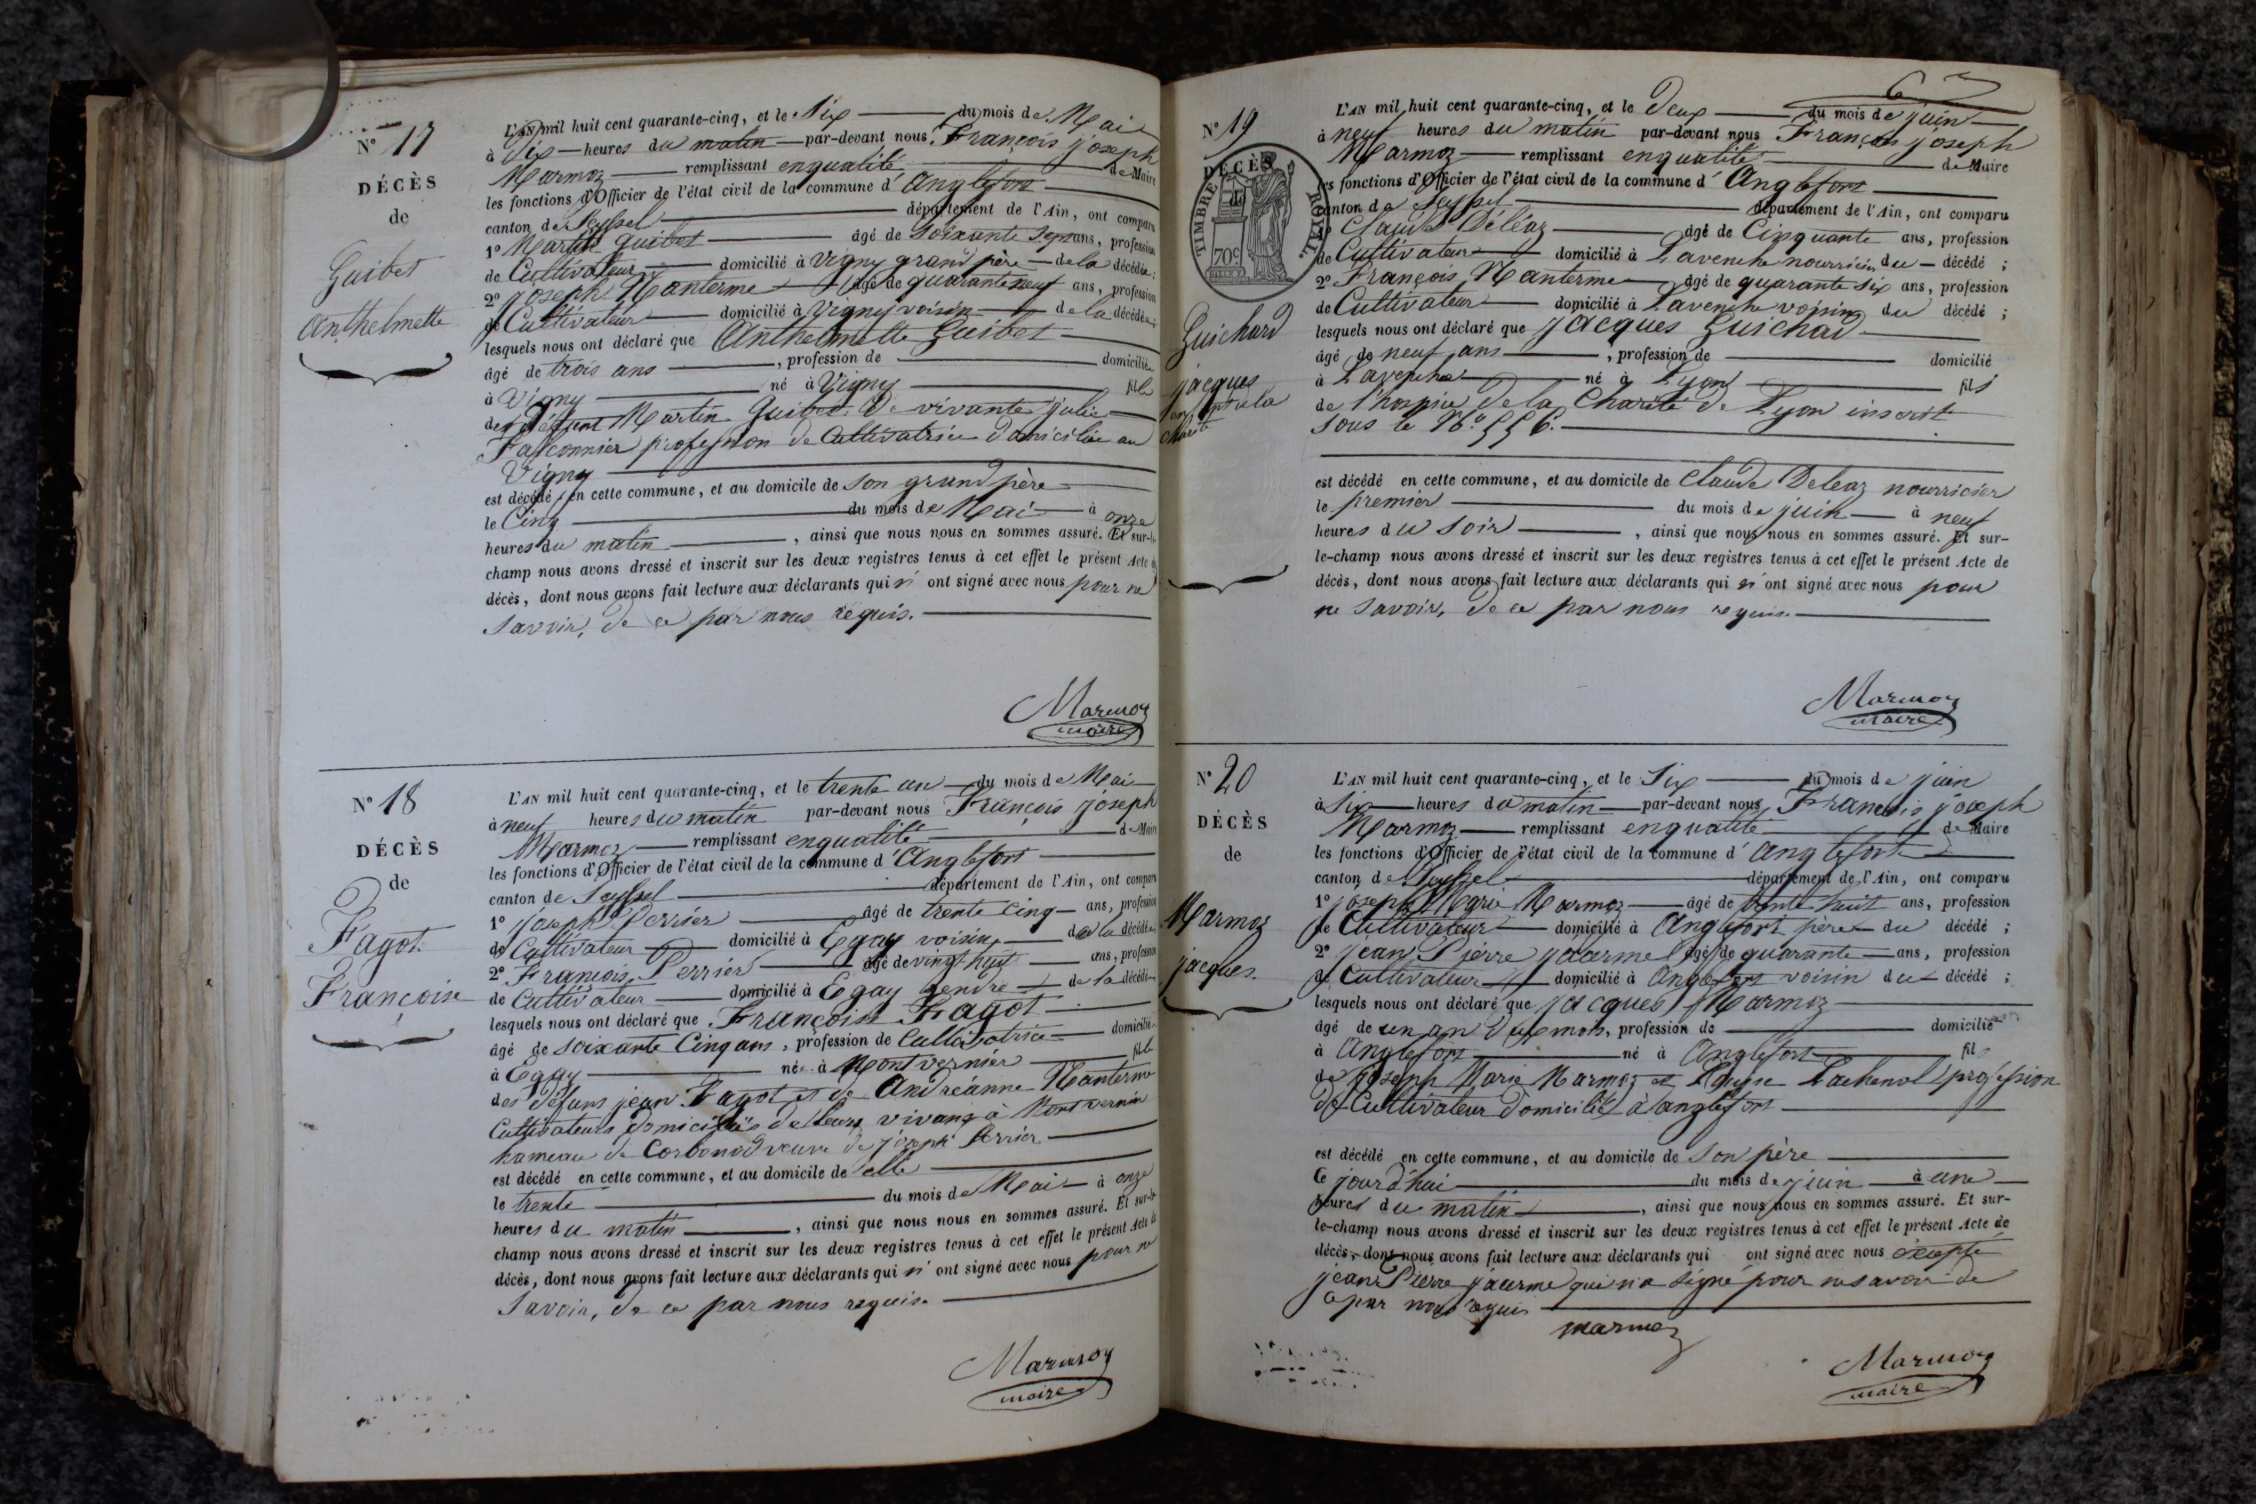 N° 17
DÉCÈS
de
Guibet
Anthelmette
L'AN mil huit cent quarante-cinq, et le Six du mois de Mai
à Dix heures du matin par-devant nous François joseph
Marmoz remplissant enqualité de Maire
les fonctions d'Officier de l'état civil de la commune d'Anglefort
canton de Seyssel département de l'Ain, ont comparu
1° Martin Guibet âgé de soixante sept ans, profession
de Cultivateur domicilié à Vigny grand père de la décédée ;
2° joseph Manterme âgé de quarante neuf ans, profession
de Cultivateur domicilié à Vigny voisin de la décédée ;
lesquels nous ont déclaré que Anthelmette Guibet
âgé de trois ans , profession de domiciliée
à Vigny né à Vigny fille
de défunt Martin Guibet De vivante julie
Falconnier profession de Cultivatrice domiciliée au
Vigny
est décédé en cette commune, et au domicile de son grand père
le Cinq du mois de Mai à onze
heures du matin , ainsi que nous nous en sommes assuré. Et sur-le-
champ nous avons dressé et inscrit sur les deux registres tenus à cet effet le présent Acte de
décès, dont nous avons fait lecture aux déclarants qui n'ont signé avec nous pour ne
savoir, de ce par nous requis.
Marmoz
maire
N° 18
DÉCÈS
de
Fagot
Françoise
L'AN mil huit cent quarante-cinq, et le trente un du mois de Mai
à neuf heures du matin par-devant nous François joseph
Marmoz remplissant enqualité de Maire
les fonctions d'Officier de l'état civil de la commune d'Anglefort
canton de Seyssel département de l'Ain, ont comparu
1° joseph Perrier âgé de trente Cinq ans, profession
de Cultivateur domicilié à Egay voisin de la décédée
2° François Perrier âgé de vingt huit ans, profession
de Cultivateur domicilié à Egay gendre de la décédée
lesquels nous ont déclaré que Françoise Fagot
âgé de soixante Cinq ans, profession de Cultivatrice domiciliée
à Egay née à Montvernier fille
des défuns jean Fagot et de Andréanne Manterme
Cultivateurs domiciliés de leurs vivans à Montvernier
hameau de Corbonod veuve de joseph Perrier
est décédé en cette commune, et au domicile de elle
le trente du mois de Mai à onze
heures du matin , ainsi que nous nous en sommes assuré. Et sur-le-
champ nous avons dressé et inscrit sur les deux registres tenus à cet effet le présent Acte de
décès, dont nous avons fait lecture aux déclarants qui n'ont signé avec nous pour ne
savoir, de ce par nous requis.
Marmoz
maire
N° 19
DÉCÈS
de
TIMBRE ROYAL
70c
Guichard
jacques
L'AN mil huit cent quarante-cinq, et le Deux du mois de juin
à neuf heures du matin par-devant nous François joseph
Marmoz remplissant enqualité de Maire
les fonctions d'Officier de l'état civil de la commune d'Anglefort
canton de Seyssel département de l'Ain, ont comparu
Claude Déléaz âgé de Cinquante ans, profession
de Cultivateur domicilié à Lavenche nourricier du décédé ;
2° François Manterme âgé de quarante six ans, profession
de Cultivateur domicilié à Lavenche voisin du décédé ;
lesquels nous ont déclaré que jacques Guichard
âgé de neuf ans , profession de domicilié
à Lavenche né à Lyon fils
de l'hospice de la Charité de Lyon inscrit
sous le N° 556.
est décédé en cette commune, et au domicile de Claude Deleaz nourricier
le premier du mois de juin à neuf
heures du soir , ainsi que nous nous en sommes assuré. Et sur-
le-champ nous avons dressé et inscrit sur les deux registres tenus à cet effet le présent Acte de
décès, dont nous avons fait lecture aux déclarants qui n'ont signé avec nous pour
ne savoir, de ce par nous requis.
Marmoz
maire
N° 20
DÉCÈS
de
Marmoz
jacques.
L'AN mil huit cent quarante-cinq, et le Six du mois de juin
à Six heures du matin par-devant nous François joseph
Marmoz remplissant enqualité de Maire
les fonctions d'Officier de l'état civil de la commune d'Anglefort
canton de Seyssel département de l'Ain, ont comparu
1° joseph Marie Marmoz âgé de trente huit ans, profession
de Cultivateur domicilié à Anglefort père du décédé ;
2° jean Pierre jacerme âgé de quarante ans, profession
de Cultivateur domicilié à Anglefort voisin du décédé ;
lesquels nous ont déclaré que jacques Marmoz
âgé de un an mois, profession de domicilié
à Anglefort né à Anglefort fil
de joseph Marie Marmoz et Louise Lachenal profession
de Cultivateur domicilié à anglefort
est décédé en cette commune, et au domicile de Son père
Ce jourd'hui du mois de juin à une
heures du matin , ainsi que nous nous en sommes assuré. Et sur-
le-champ nous avons dressé et inscrit sur les deux registres tenus à cet effet le présent Acte de
décès, dont nous avons fait lecture aux déclarants qui ont signé avec nous excepté
jean Pierre jacerme qui n'a signé pour ne savoir de
ce par nous requis
marmoz
Marmoz
maire